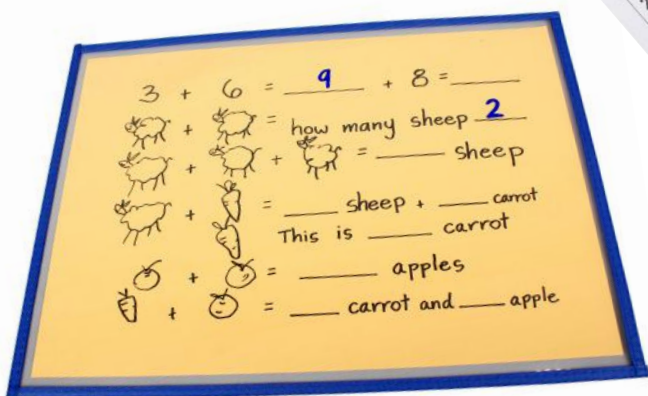 3 + 6 = 9 + 8 = ____
+ = how many sheep 2
+ + = ____ sheep
+ = ____ sheep + ____ carrot
This is ____ carrot
+ = ____ apples
+ = ____ carrot and ____ apple